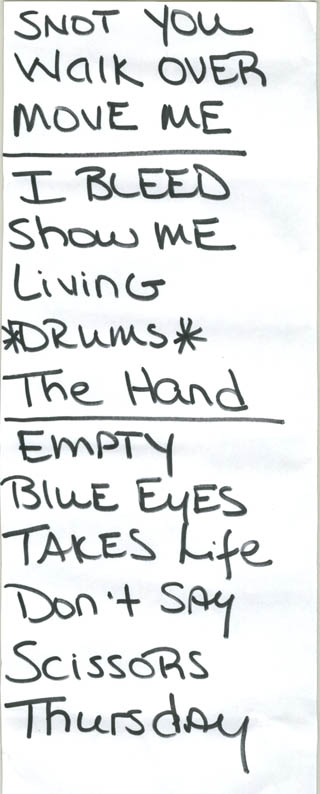 SNOT YOU
WALK OVER
MOVE ME
I BLEED
Show ME
LiviNG
*DRums*
The Hand
EMPTY
BluE EyES
TAKES Life
Don't SAy
ScissoRS
ThursdAy